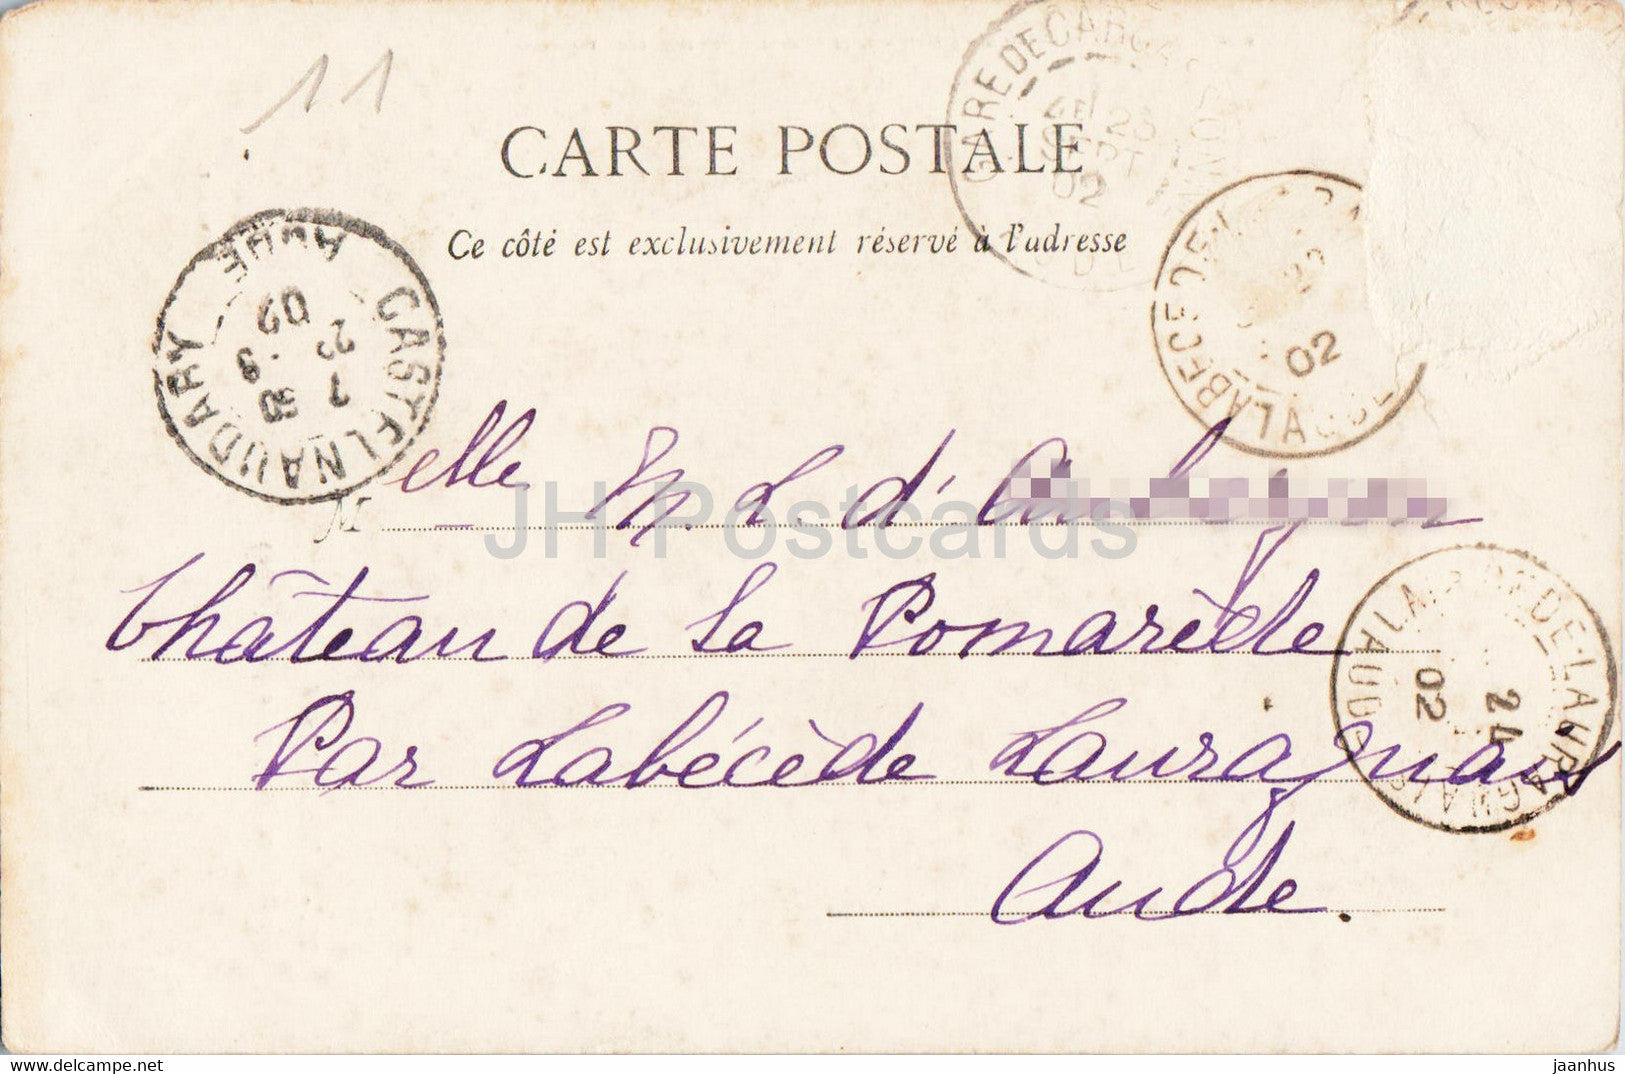 11
CARTE POSTALE
Ce côté est exclusivement réservé à l'adresse
GARE DE CARCASSONNE
23
SEPT
02
CASTELNAUDARY AUDE
7 30
23 9
02
LABECEDE-
02
M elle M. L. d'
Château de La Pomarède
Par Labécède Lauragnais
Aude.
DE-LAURAGUAIS AUDE
24
02
JH Postcards
www.delcampe.net
jaanhus